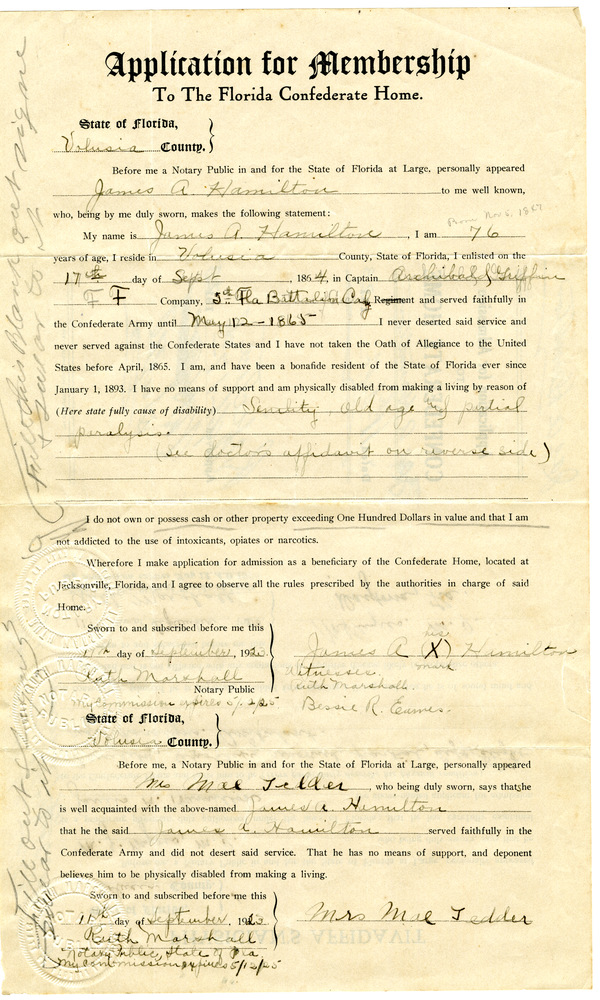 Application for Membership
To The Florida Confederate Home.
State of Florida,
Volusia County.
Before me a Notary Public in and for the State of Florida at Large, personally appeared
James A. Hamilton to me well known,
who, being by me duly sworn, makes the following statement:
Born Nov 6, 1847
My name is James A. Hamilton, I am 76
years of age, I reside in Volusia County, State of Florida, I enlisted on the
17th day of Sept 1864, in Captain Archibald Griffin
F F Company, 5th Fla Battalion Cav Regiment and served faithfully in
the Confederate Army until May 12 - 1865 I never deserted said service and
never served against the Confederate States and I have not taken the Oath of Allegiance to the United
States before April, 1865. I am, and have been a bonafide resident of the State of Florida ever since
January 1, 1893. I have no means of support and am physically disabled from making a living by reason of
(Here state fully cause of disability) Senility, old age & partial
paralysis.
(see doctor's affidavit on reverse side)
I do not own or possess cash or other property exceeding One Hundred Dollars in value and that I am
not addicted to the use of intoxicants, opiates or narcotics.
Wherefore I make application for admission as a beneficiary of the Confederate Home, located at
Jacksonville, Florida, and I agree to observe all the rules prescribed by the authorities in charge of said
Home.
Sworn to and subscribed before me this
11th day of September, 1923
Ruth Marshall
Notary Public
My Commission expires 5/12/25
James A (X) Hamilton
his
mark
Witnesses.
Ruth Marshall.
Bessie R. Eames.
State of Florida,
Volusia County.
Before me, a Notary Public in and for the State of Florida at Large, personally appeared
Mrs Mae Tedder, who being duly sworn, says that she
is well acquainted with the above-named James A. Hamilton
that he the said James A. Hamilton served faithfully in the
Confederate Army and did not desert said service. That he has no means of support, and deponent
believes him to be physically disabled from making a living.
Sworn to and subscribed before me this
11th day of September, 1923
Ruth Marshall
Notary Public, State of Fla
My commission expires 5/12/25
Mrs Mae Tedder
Fill this blank out signe
& swear to it
Fill out &
swear to it